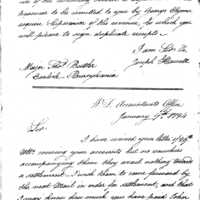 treasurer to be remitted to you by George Clymer
esquire Supervisor of the revenue, for which you
will please to sign duplicate receipts
I am Sir &c
Joseph Howell
Major Thos Butler
Carlisle Pennsylvania
W D Accountants Office
January 9th 1794
Sir
I have received your letter of
ulto. covering your accounts but no vouchers
accompanying them they want nothing towards
a settlement. I wish them to come forward by
the next Mail in order for settlement, and that
I may know how much you have paid John